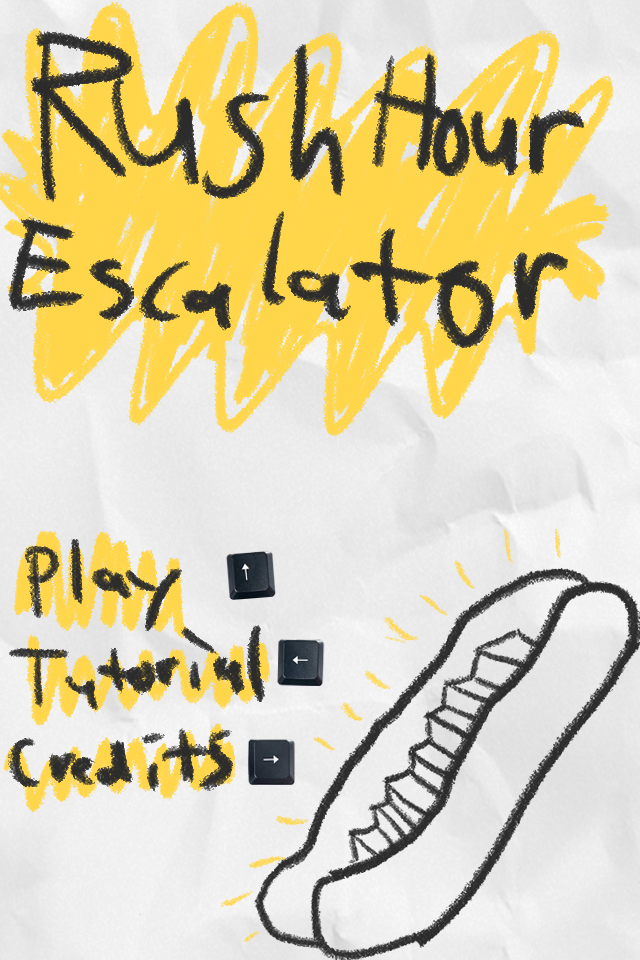 Rush Hour
Escalator
Play ↑
Tutorial ←
Credits →